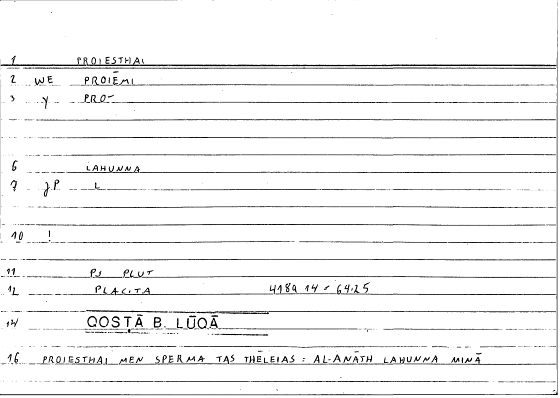 1 PROIESTHAI
2 WE PROIĒMI
3 y PRO-
6 LAHUNNA
7 JP L
10 !
11 PS PLUT
12 PLACITA 418A 14 = 64.25
14 QOSṬĀ B. LŪQĀ
16 PROIESTHAI MEN SPERMA TAS THĒLEIAS : AL-ANĀTH LAHUNNA MINĀ